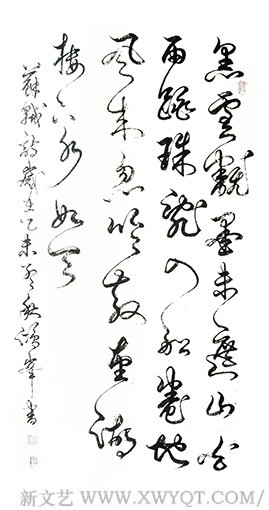 黑雲翻墨未遮山白
雨跳珠亂入船卷地
風来忽吹散望湖
樓下水如天
蘇軾詩歲在乙未秋書
新文艺 WWW.XWYQT.COM/